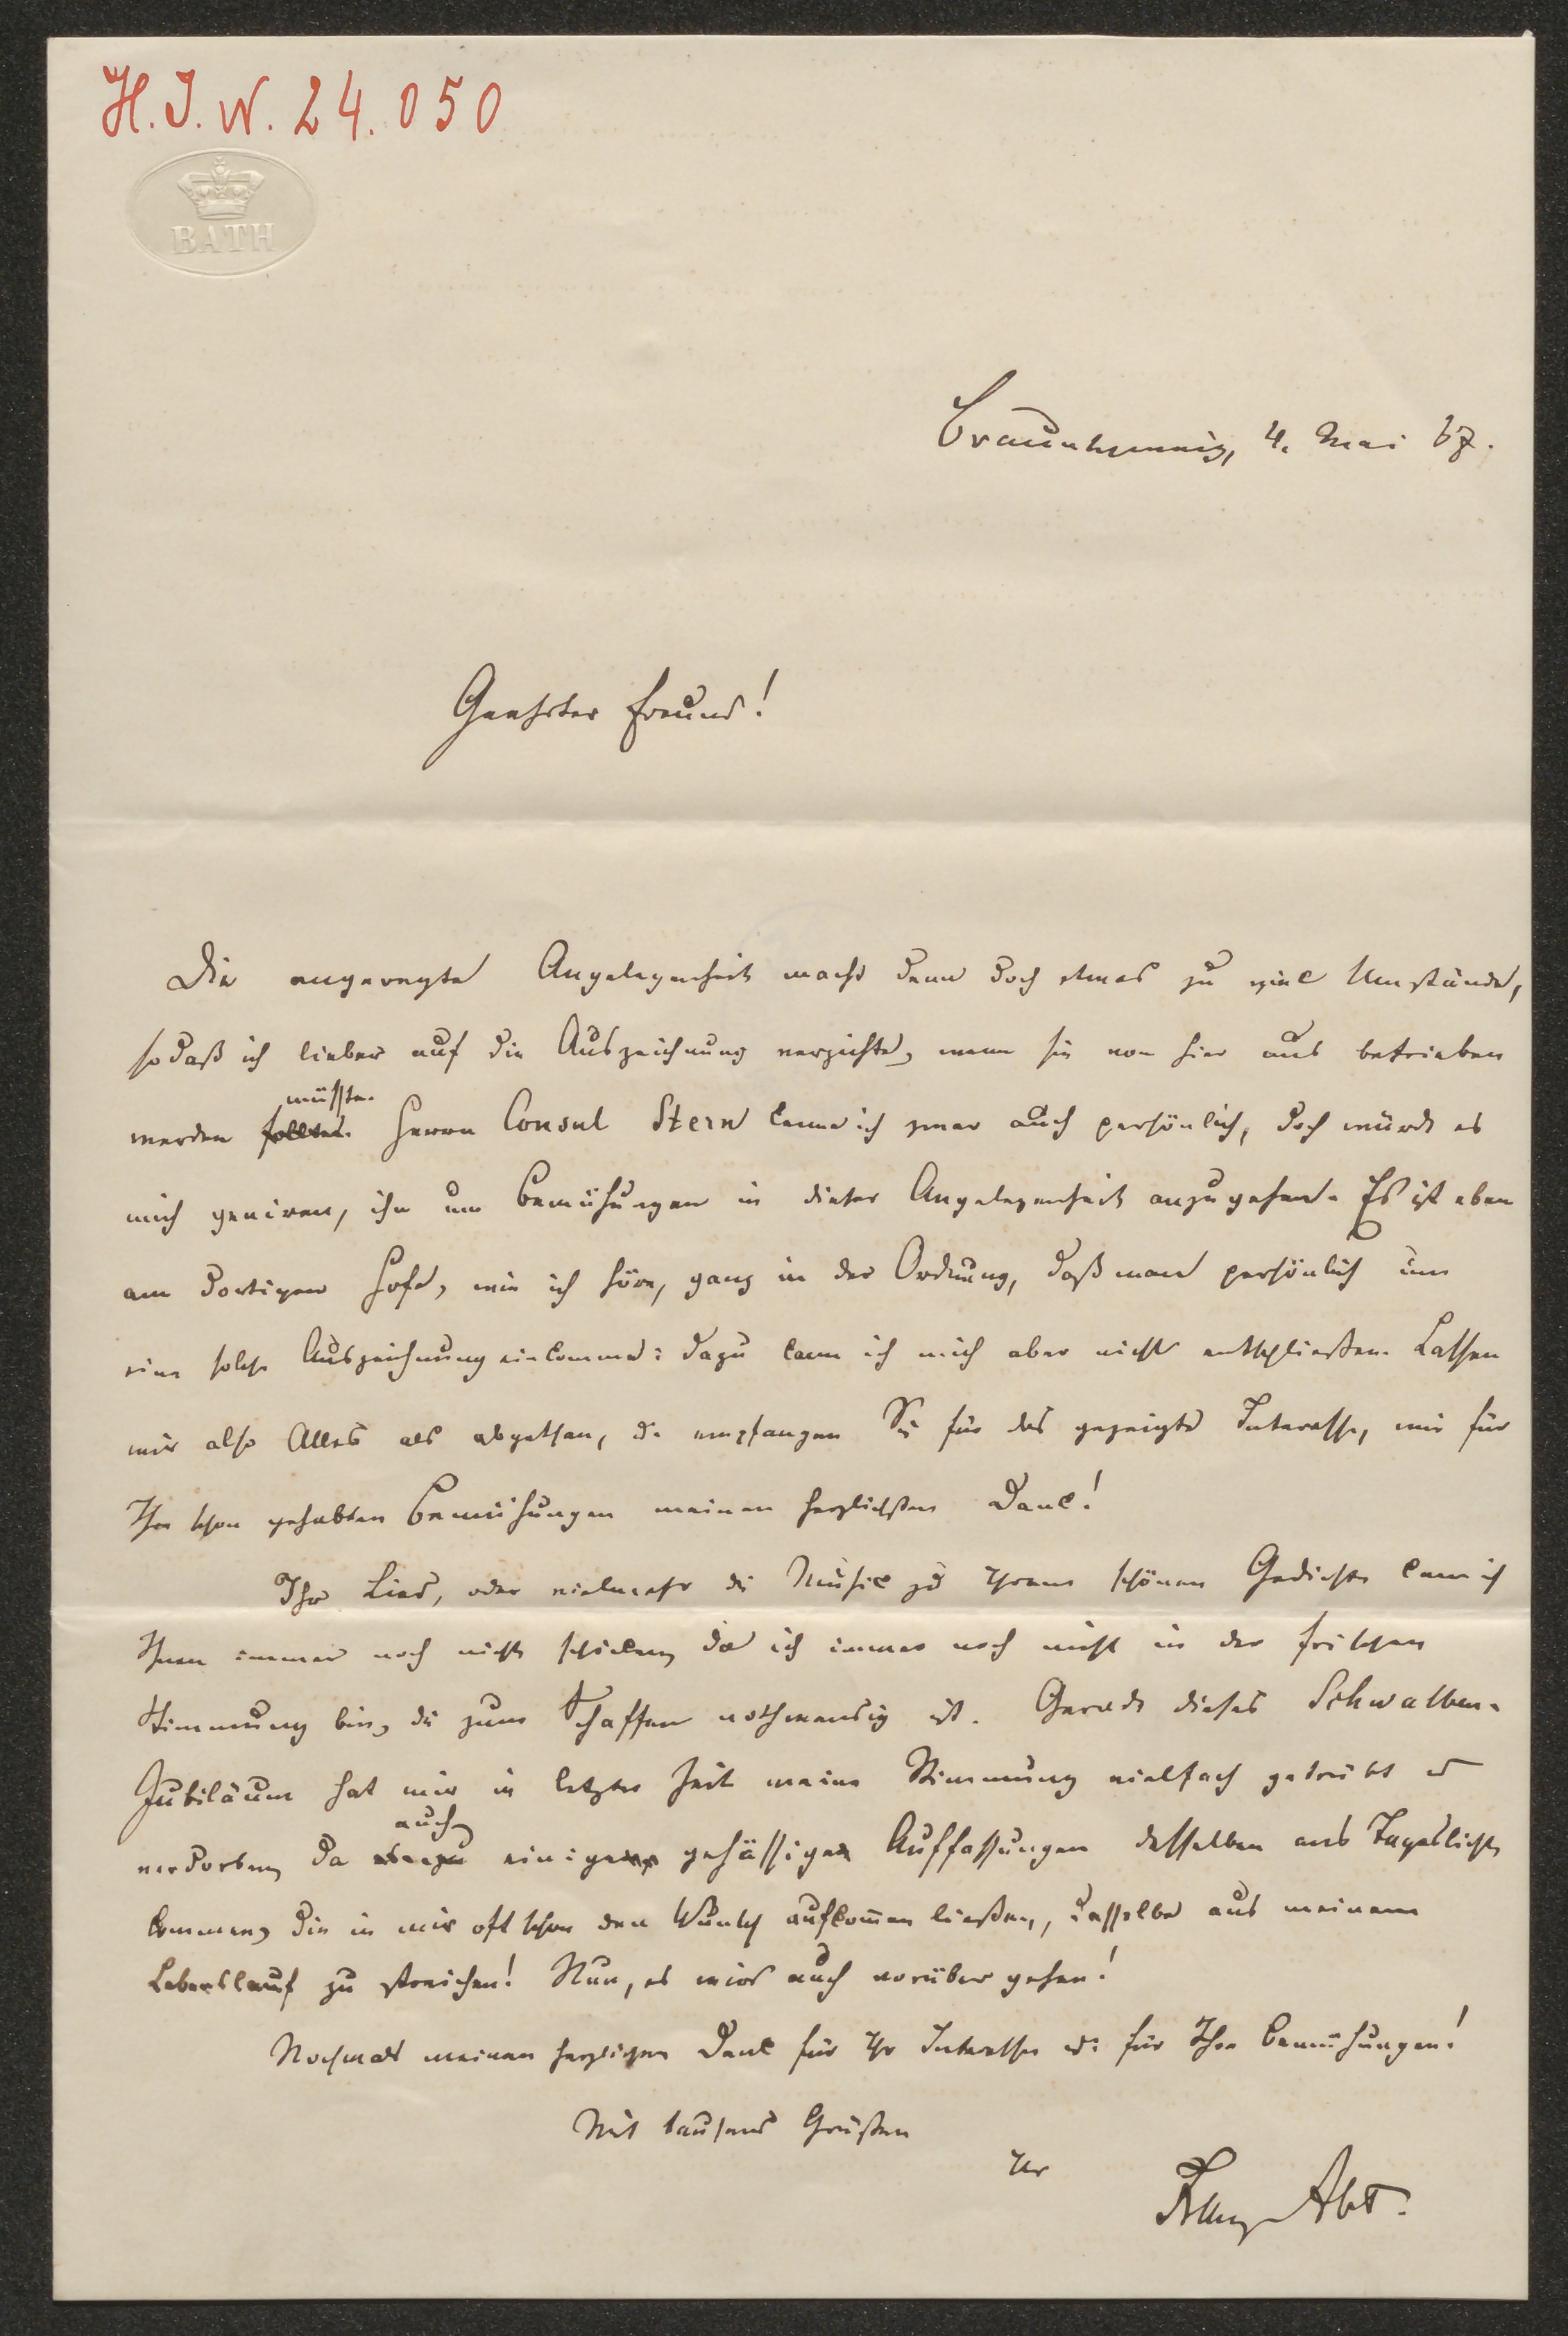 H. I. N. 24.050
BATH
Braunschweig, 4. Mai 67.
Geehrter Freund!
Die angeregte Angelegenheit macht denn doch etwas zu viel Umstände,
so daß ich lieber auf die Auszeichnung verzichte, wenn sie von hier aus betrieben
müßte.
werden sollte. Herrn Consul Stern kenne ich zwar auch persönlich, doch würde es
mich geniren, ihn um Bemühungen in dieser Angelegenheit anzugehen. Es ist eben
am dortigen Hofe, wie ich höre, ganz in der Ordnung, daß man persönlich um
eine solche Auszeichnung einkomme: dazu kann ich mich aber nicht entschließen. Lassen
wir also Alles als abgethan, u. empfangen Sie für das gezeigte Interesse, wie für
Ihre schon gehabten Bemühungen meinen herzlichsten Dank!
Ihr Lied, oder vielmehr die Musik zu Ihrem schönen Gedichte kann ich
Ihnen immer noch nicht schicken, da ich immer noch nicht in der frischen
Stimmung bin, die zum Schaffen nothwendig ist. Gerade dieses Schwalben-
Jubiläum hat mir in letzter Zeit meine Stimmung vielfach getrübt u
auch
verdorben, da einige gehässige Auffassungen desselben ans Tageslicht
kommen, die in mir oft schon den Wunsch aufkom̄en ließen, dasselbe aus meinem
Lebenslauf zu streichen! Nun, es wird auch vorüber gehen!
Nochmals meinen herzlichen Dank für Ihr Interesse u. für Ihre Bemühungen!
Mit tausend Grüßen
Ihr
Franz Abt.